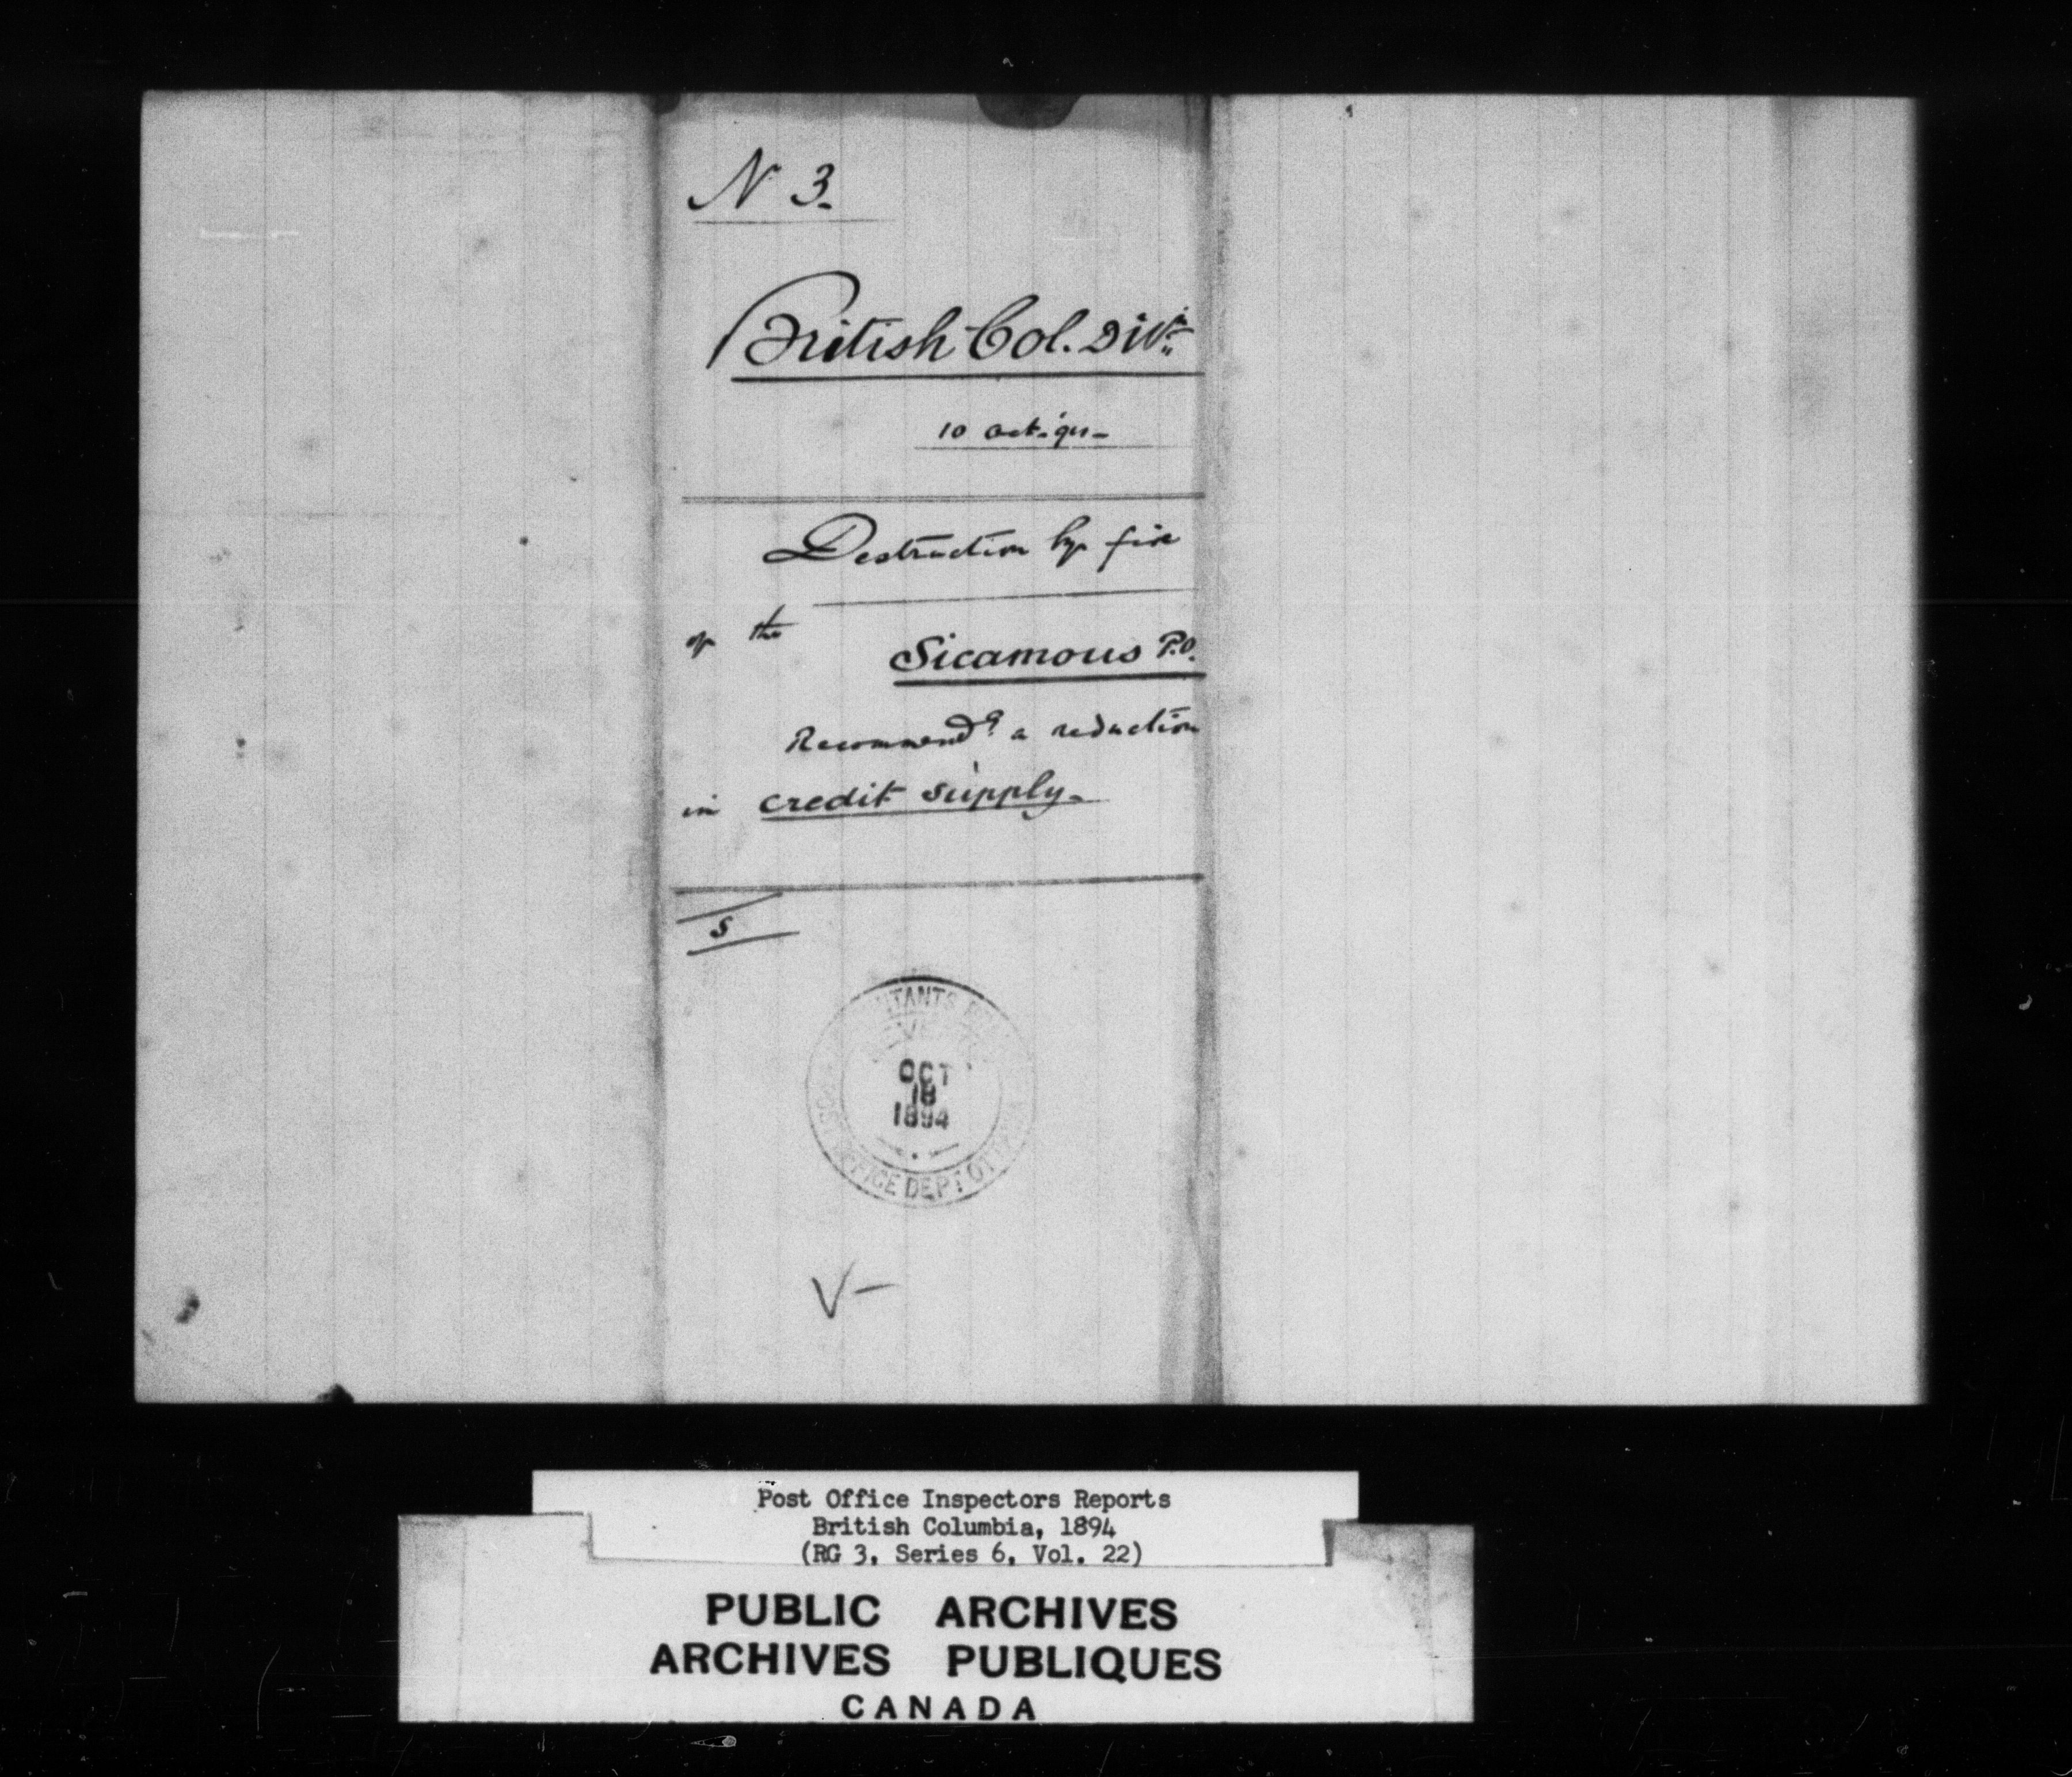 N 3.
British Col. Divn
10 Oct. 94
Destruction by fire
of the
Sicamous P.O.
Recommendg a reduction
in credit supply.
5
OCT
18
1894
POST OFFICE DEPT OTTAWA
V-
Post Office Inspectors Reports
British Columbia, 1894
(RG 3, Series 6, Vol. 22)
PUBLIC ARCHIVES
ARCHIVES PUBLIQUES
CANADA